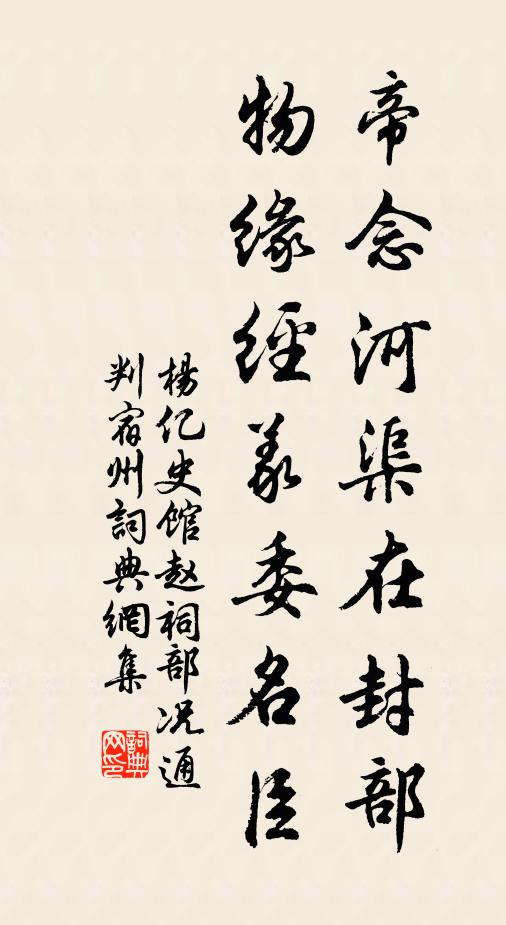 帝念河渠在封部
物緣經義委名臣
楊亿史馆赵祠部况通
判宿州詞典網集
詞典
网印